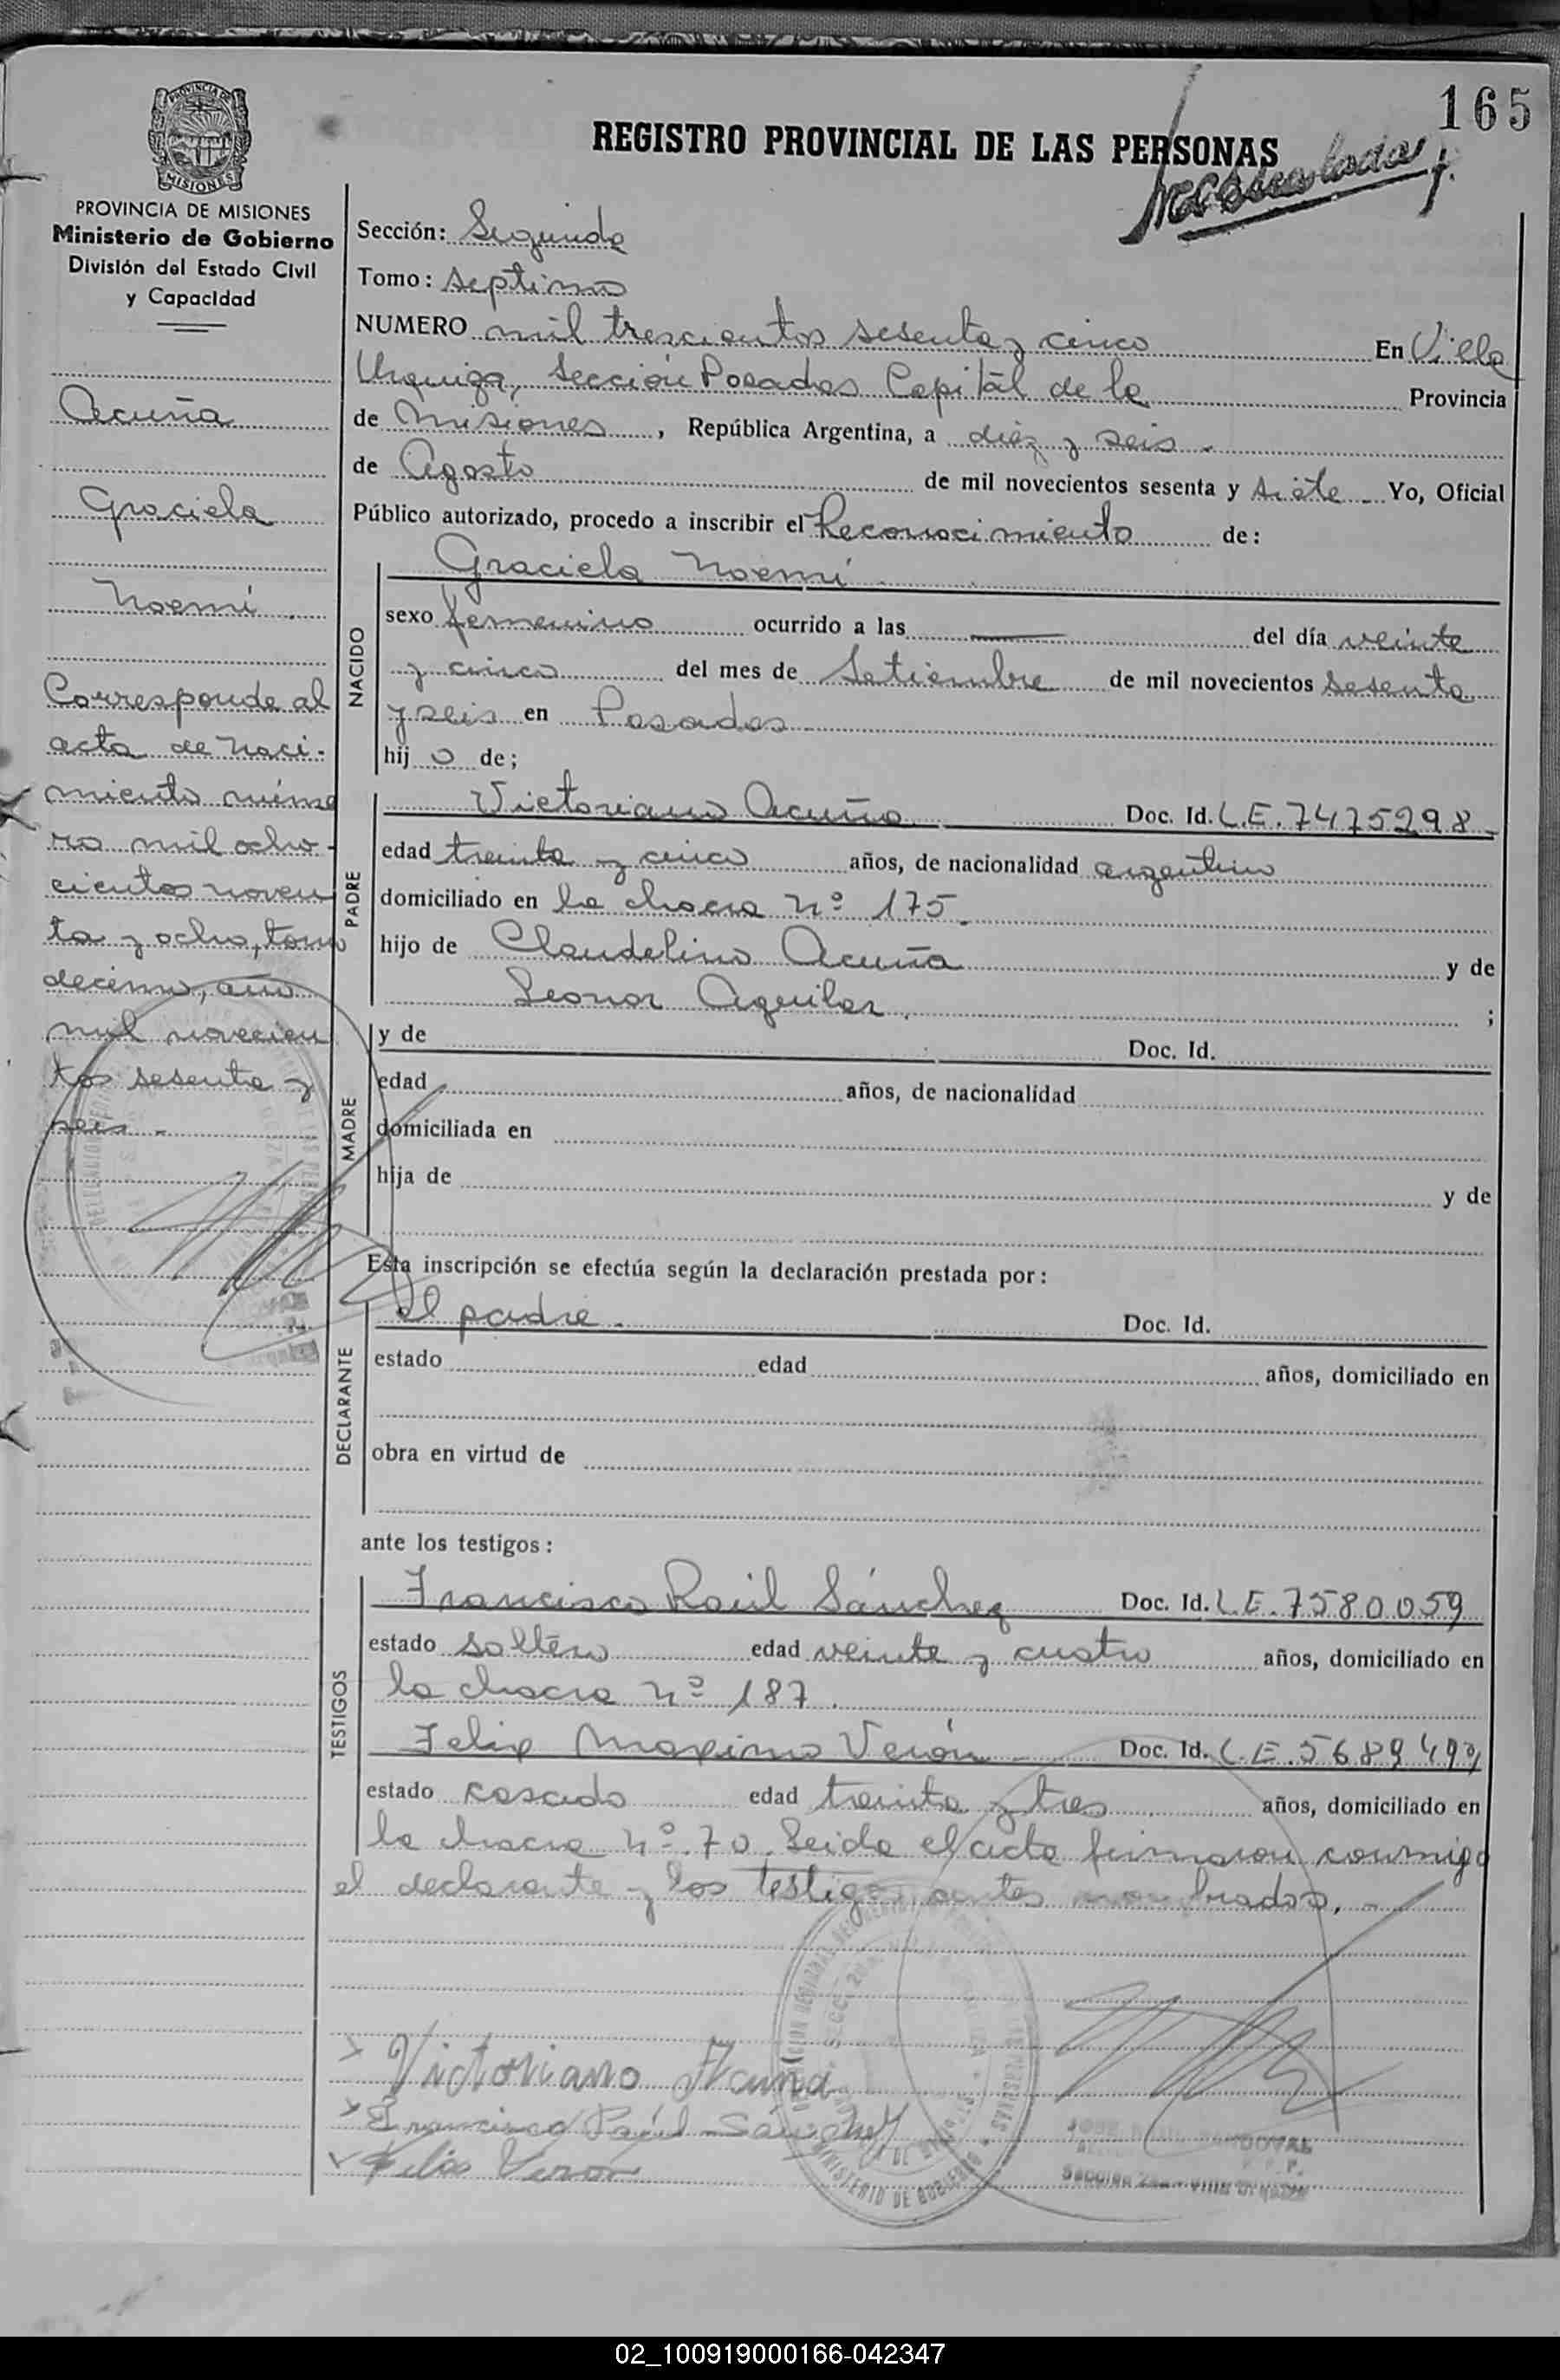 165
PROVINCIA DE
MISIONES
REGISTRO PROVINCIAL DE LAS PERSONAS
PROVINCIA DE MISIONES
Ministerio de Gobierno
División del Estado Civil
y Capacidad
Acuña
Graciela
Noemí.
Corresponde al
acta de naci-
miento núme
ro mil ocho-
cientos noven
ta y ocho, tomo
decimo, año
mil novecien
tos sesenta y
seis -
Sección: Segunda
Tomo: septimo
NUMERO mil trescientos sesenta y cinco En Villa
Urquiza, Sección Posadas Capitál de la Provincia
de Misiones, República Argentina, a diez y seis -
de Agosto de mil novecientos sesenta y siete - Yo, Oficial
Público autorizado, procedo a inscribir el Reconocimiento de:
NACIDO
Graciela Noemí
sexo femenino ocurrido a las — del día veinte
y cinco del mes de Setiembre de mil novecientos sesenta
y seis en Posadas
hij o de;
PADRE
Victoriano Acuña Doc. Id. L.E. 7475298-
edad treinta y cinco años, de nacionalidad argentino
domiciliado en la chacra Nº 175.
hijo de Claudelino Acuña y de
Leonor Aguilar. ;
MADRE
y de Doc. Id.
edad años, de nacionalidad
domiciliada en
hija de y de
Esta inscripción se efectúa según la declaración prestada por:
DECLARANTE
el padre. Doc. Id.
estado edad años, domiciliado en
obra en virtud de
ante los testigos:
TESTIGOS
Francisco Raúl Sánchez Doc. Id. L.E. 7580059
estado soltero edad veinte y cuatro años, domiciliado en
la chacra Nº 187.
Felix Maximo Verón Doc. Id. L.E. 5689
estado casado edad treinta y tres años, domiciliado en
la chacra Nº 70. Leida el acta firmaron conmigo
el declarante y los testigos antes nombrados. -
Victoriano Acuña
Francisco Raúl Sánchez
Felix Veron
MINISTERIO DE GOBIERNO
SANDOVAL
02_100919000166-042347